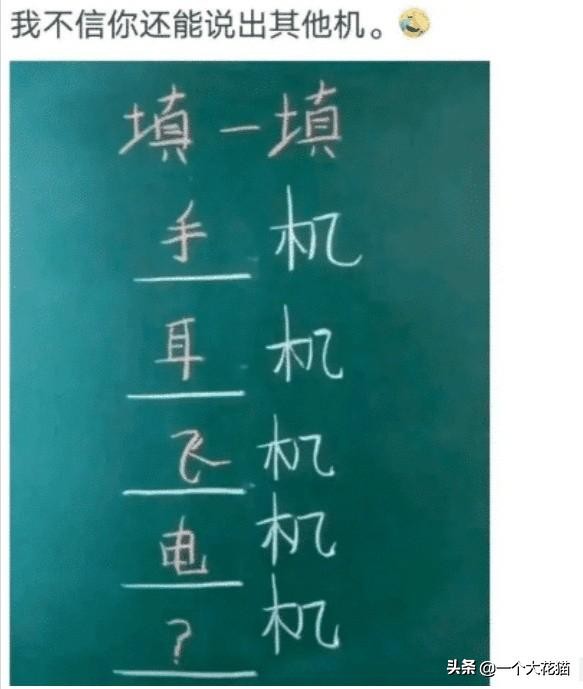 我不信你还能说出其他机。
填一填
手 机
耳 机
飞 机
电 机
? 机
头条 @一个大花猫